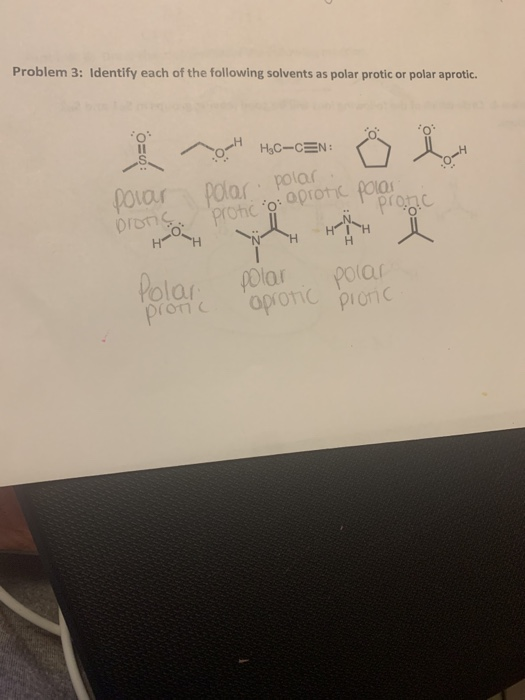 Problem 3: Identify each of the following solvents as polar protic or polar aprotic.
:O:
S
O-H
H₃C-C≡N:
O
:O:
O-H
polar protic
polar protic
polar aprotic
polar protic
H-O-H
:O:
N
H
H-N-H
H
:O:
Polar protic
polar aprotic
polar protic